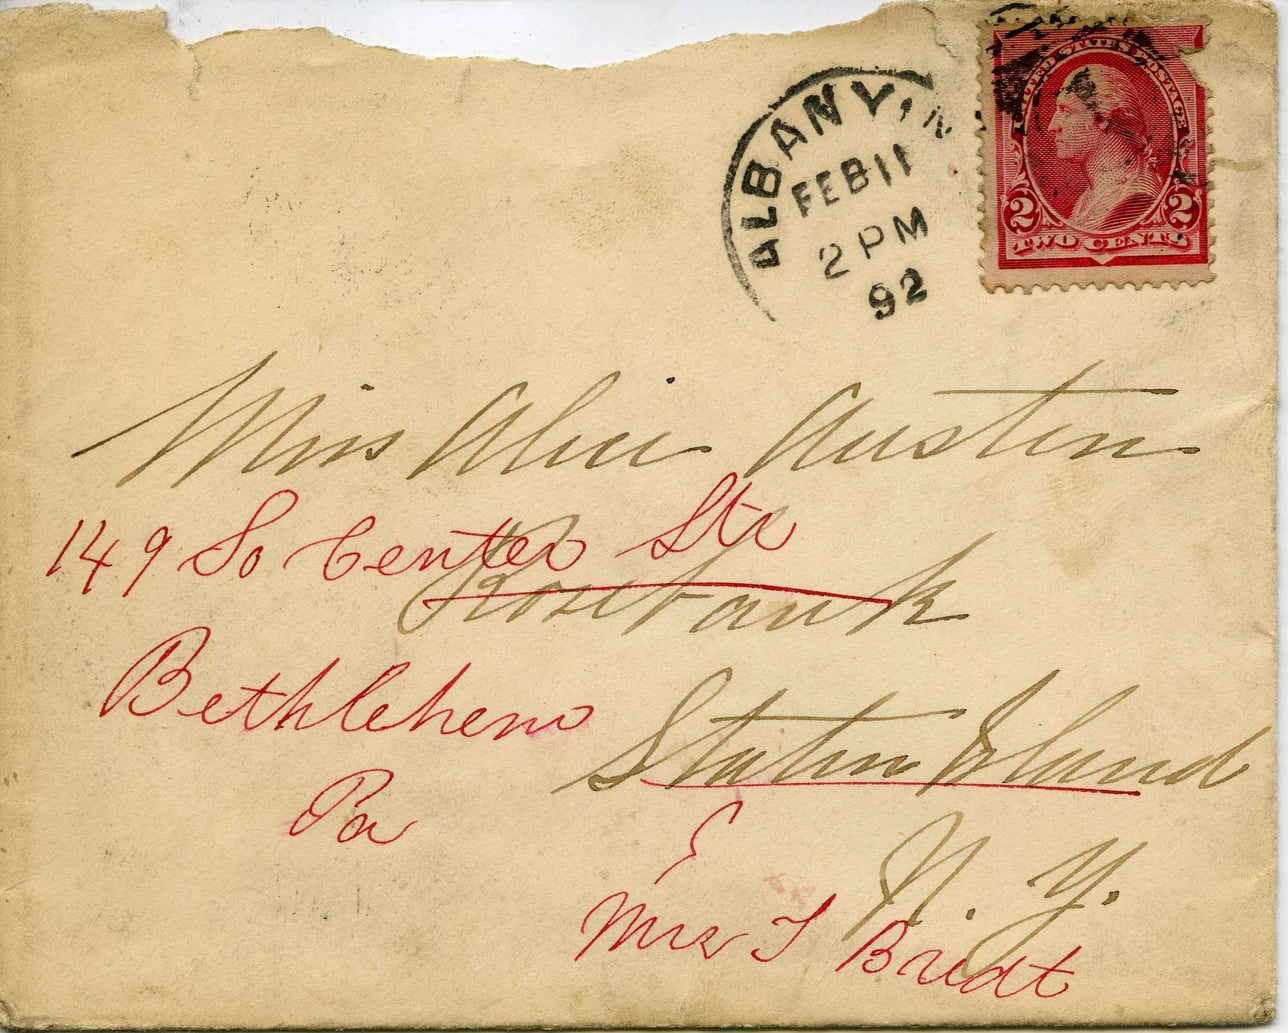 ALBANY, N
FEB 11
2 PM
92
UNITED STATES POSTAGE
2 2
TWO CENTS
Miss Alice Austen
149 So Center Str
Rosebank
Bethlehem
Staten Island
Pa
N. Y.
Mrs T Bredt